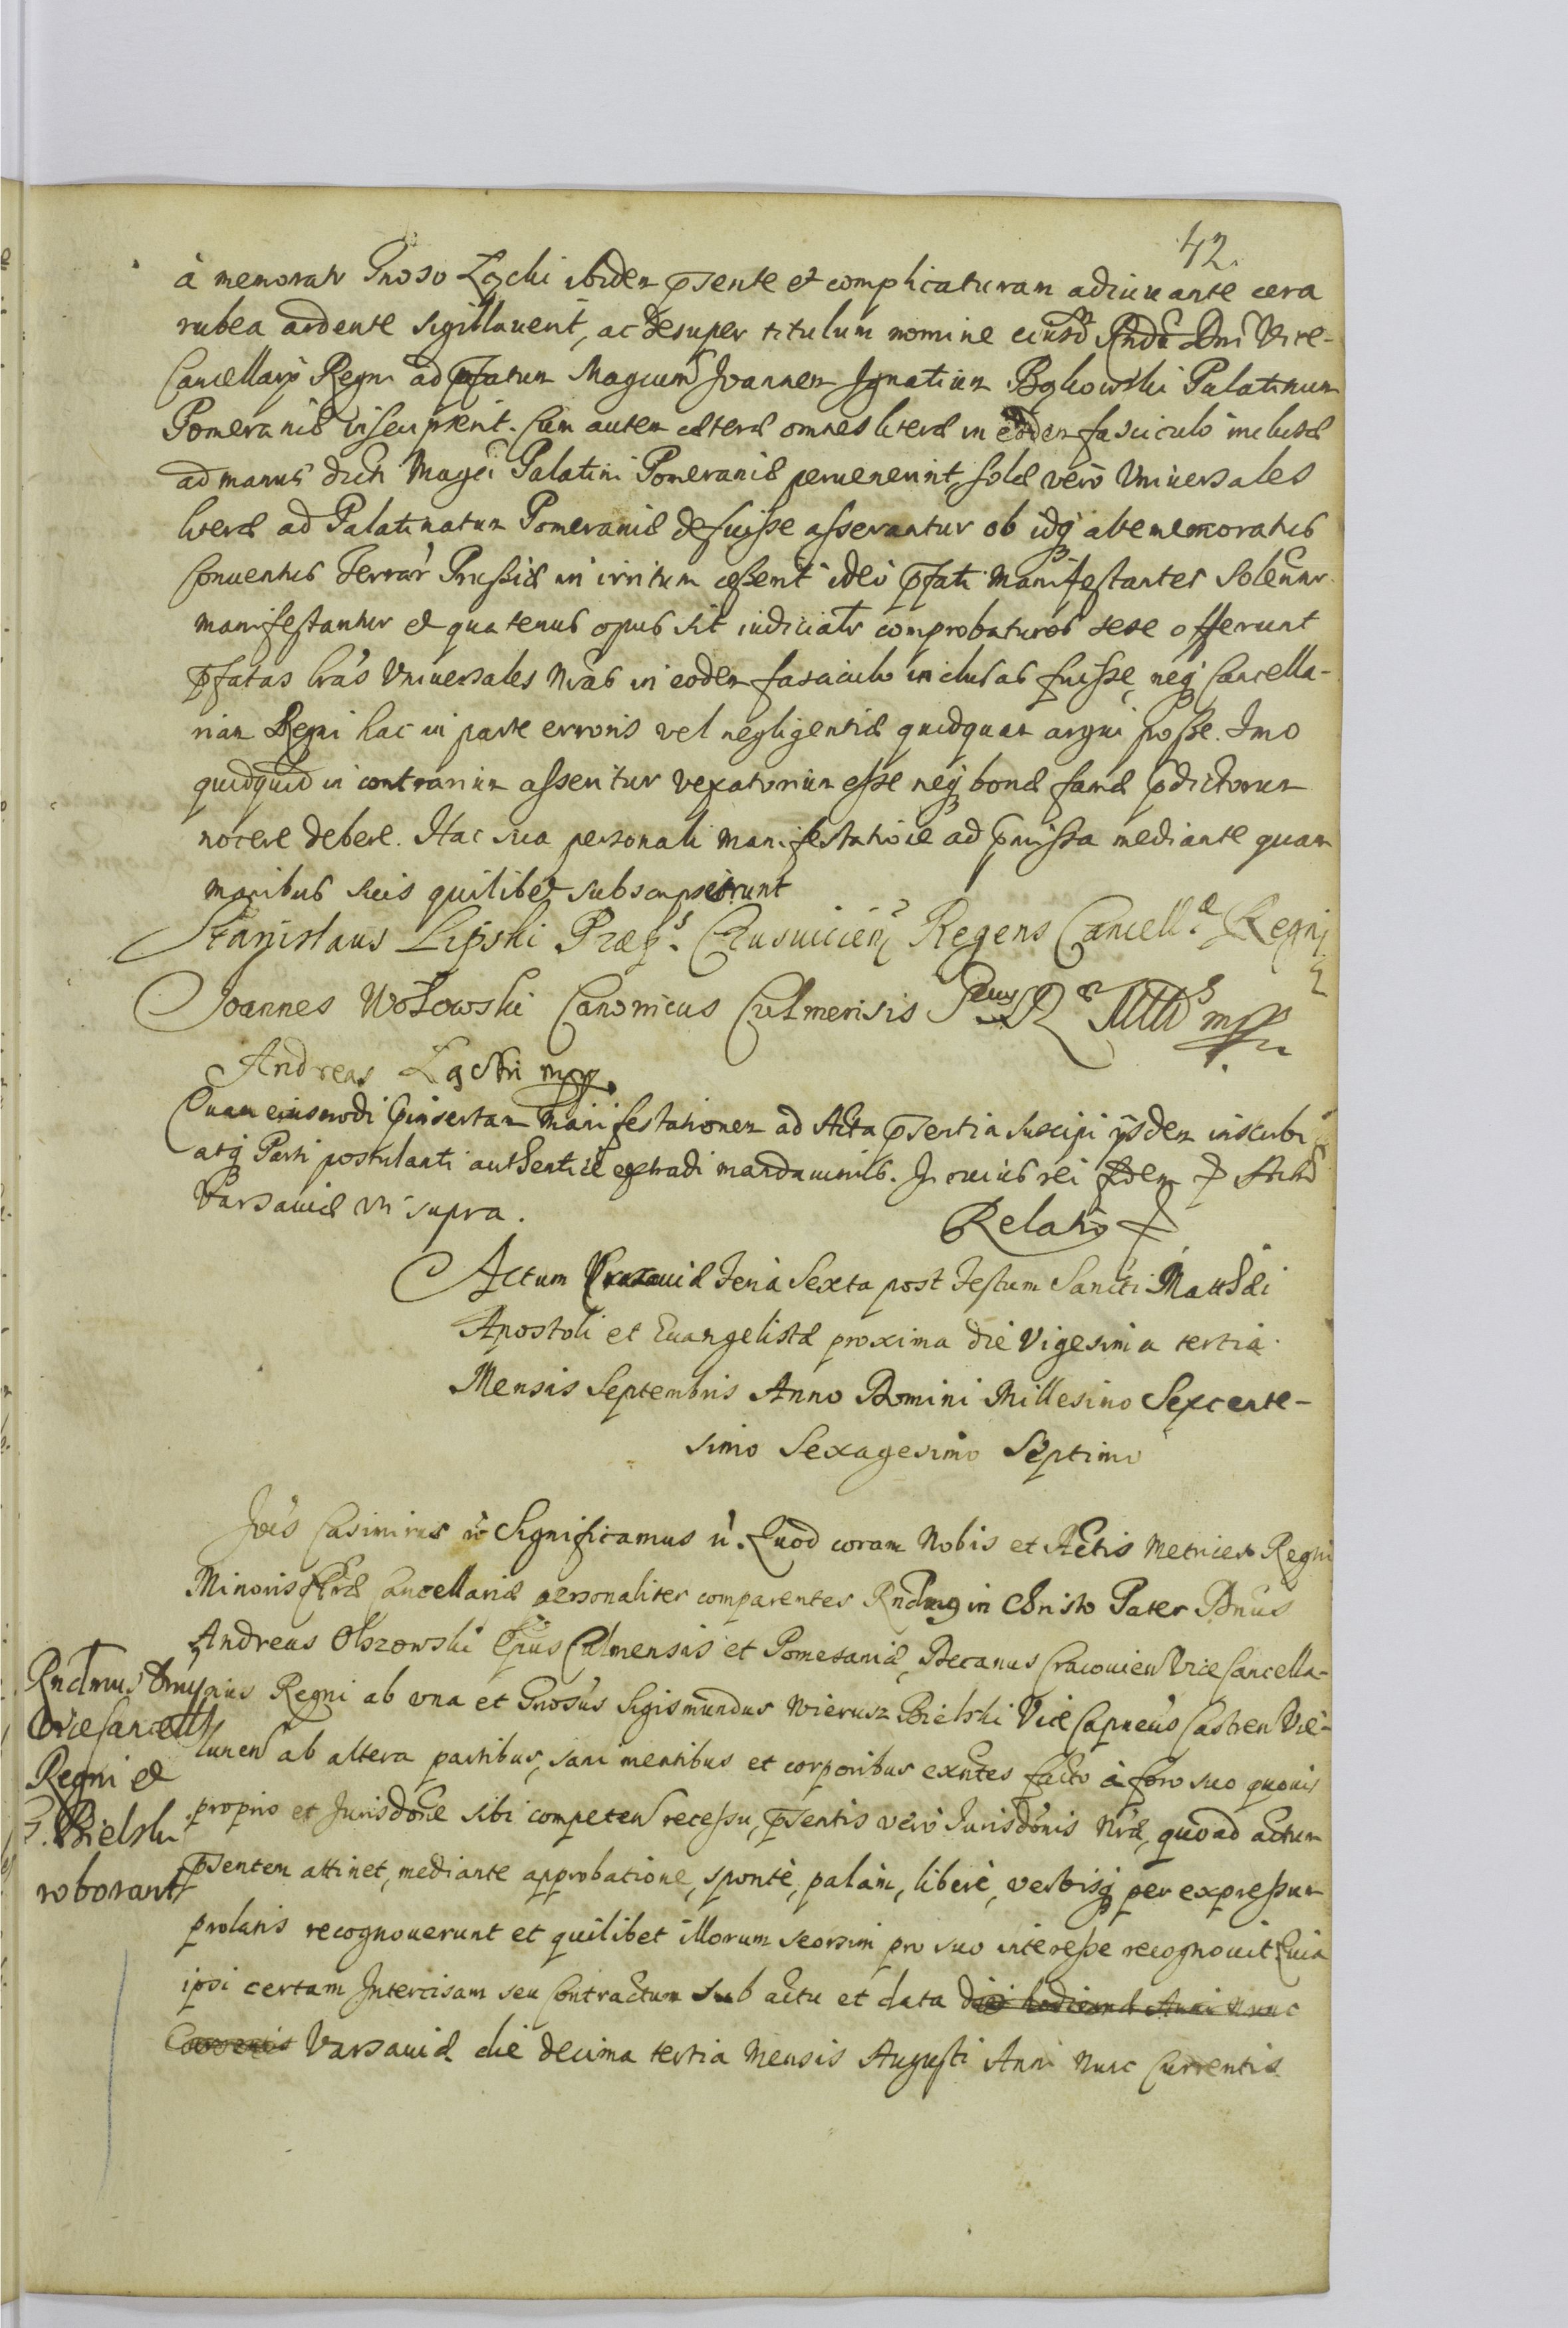 42.
à memorato Gnoso Łącki ibidem pnte et complicaturam adiuuante cera
rubea ardente sigillauerit, ac desuper titulum nomine eiusd Rndi Dni Vice-
Cancellarij Regni ad pfatum Magcum Joannem Ignatium Bąkowski Palatinum
Pomeraniæ inscripserit. Cum autem cæteræ omnes literæ in eodem fasciculo inclusæ
ad manus dicti Magci Palatini Pomeraniæ peruenerint, solæ verò Vniuersales
literæ ad Palatinatum Pomeraniæ defuisse asserantur ob idq altememoratus
Conuentus Terrar Prussiæ in irritum cesserit ideò pfati Manifestantes solenr
manifestantur et quatenus opus sit iudicialr comprobaturos sese offerunt
pfatas lras Vniuersales nras in eodem fasciculo inclusas fuisse, neq Cancella-
riam Regni hac in parte erroris vel negligentiæ quidquam argui posse. Imo
quidquid in contrarium asseritur vexatorium esse neq bonæ famæ pdictorum
nocere debere. Hac sua personali manifestatione ad pmissa mediante quam
manibus suis quilibet subscripserunt
Stanislaus Lipski Præp.s Regens Cancell.æ Regni
Joannes Wołowski Canonicus Culmensis
Andreas Łącki mpp
Quam eiusmodi pinsertam Manifestationem ad Acta psentia suscipi ijsdem inscribi
atq Parti postulanti authenticè extradi mandauimus. In cuius rei fidem p Actum
Varsauiæ vt supra.
Relatio p
Actum Varsauiæ feria Sexta post festum Sancti Matthæi
Apostoli et Euangelistæ proxima die Vigesima tertia
Mensis Septembris Anno Domini Millesimo Sexcente-
simo Sexagesimo Septimo
Joes Casimirus Significamus Quod coram Nobis et Actis Metrices Regni
Minoris Cancellariæ personaliter comparentes Rndmus in Christo Pater Dnus
Andreas Olszowski Epus Culmensis et Pomesaniæ, Decanus Cracouien Vice Cancella-
rius Regni ab vna et Gnosus Sigismundus Wierusz Bielski Vice Capneus Castren Vie-
lunen ab altera partibus, sani mentibus et corporibus exntes facto à foro suo quouis
proprio et Jurisdone sibi competen recessu, psentis verò Jurisdonis nræ, quoad actum
psentem attinet, mediante approbatione, spontè, palàm, liberè, verbisq per expressum
prolatis recognouerunt et quilibet illorum seorsim pro suo interesse recognouit Quia
ipsi certam Intercisam seu Contractum sub actu et data diei hodiernæ Anni nunc
Currentis Varsauiæ die decima tertia Mensis Augusti Anni nunc Currentis
Rndmus
Vice Cancell
Regni et
G. Bielski
roborant